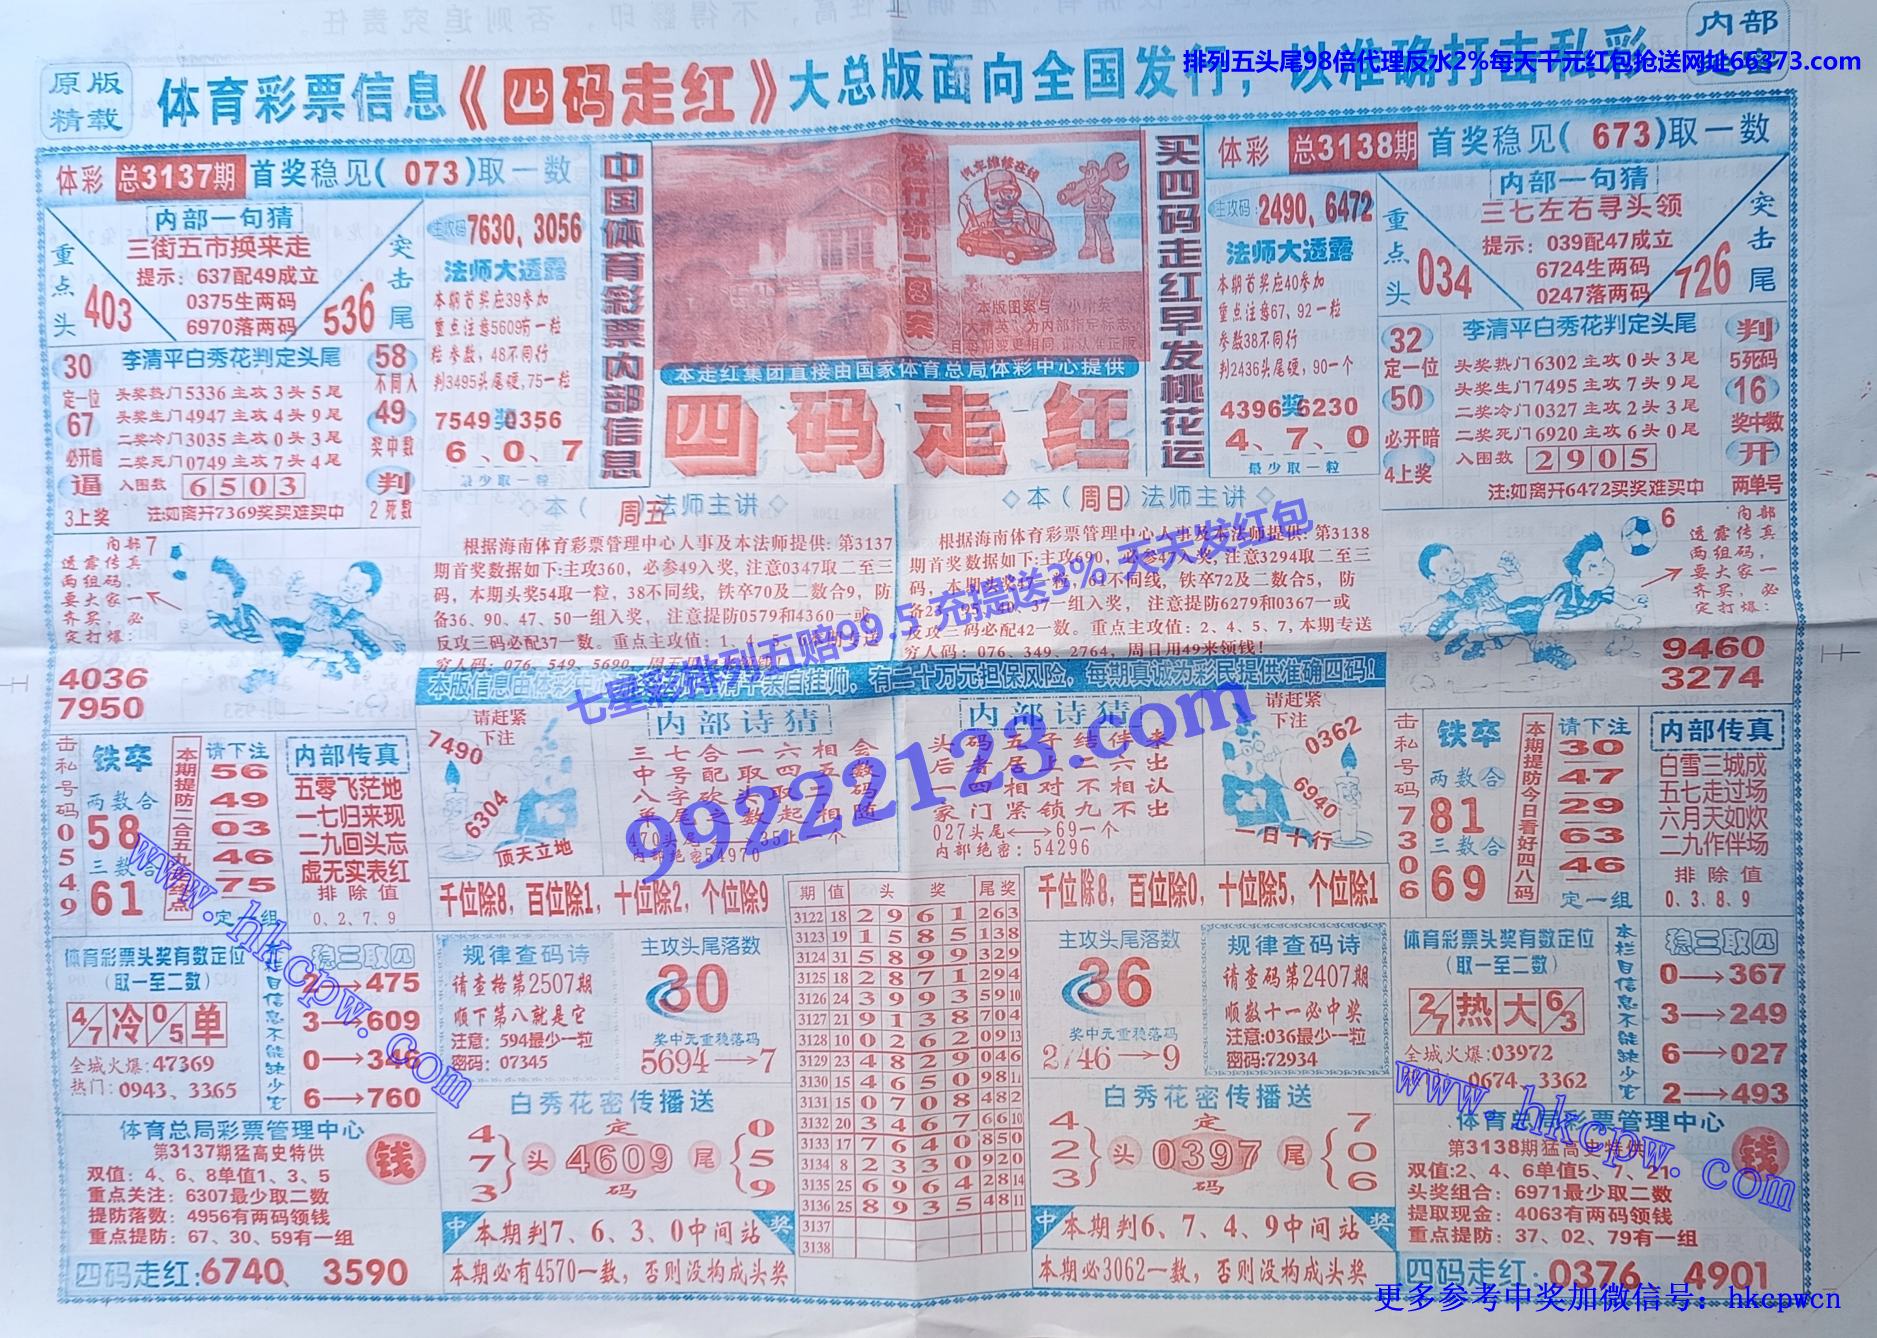 原版
精载
体育彩票信息《四码走红》大总版面向全国发行，以准确打击私彩
内部
排列五头尾98倍代理反水2%每天千元红包抢送网址66373.com
体彩 总3137期 首奖稳见(073)取一数
内部一句猜
三街五市换来走
提示：637配49成立
0375生两码
6970落两码
重点头
403
突击尾
536
主攻码 7630，3056
法师大透露
本期首奖应39参加
重点注意5609有一粒
粒参数，48不同行
判3495头尾硬，75一粒
7549奖0356
6、0、7
最少取一粒
30
定一位
67
必开暗
逼
3上奖
李清平白秀花判定头尾
头奖热门5336主攻3头5尾
头奖生门4947主攻4头9尾
二奖冷门3035主攻0头3尾
二奖死门0749主攻7头4尾
入围数 6503
注:如离开7369奖买难买中
58
不同入
49
奖中数
判
2死数
中国体育彩票内部信息
发行统一图案
汽车维修在线
本版图案与“小精英”
大精英”为内部指定标志
本走红集团直接由国家体育总局体彩中心提供
四码走红
买四码走红早发桃花运
体彩 总3138期 首奖稳见(673)取一数
主攻码：2490，6472
法师大透露
本期首奖应40参加
重点注意67、92一粒
参数38不同行
判2436头尾硬，90一个
4396奖6230
4、7、0
最少取一粒
内部一句猜
三七左右寻头领
提示：039配47成立
6724生两码
0247落两码
重点头
034
突击尾
726
32
定一位
50
必开暗
4上奖
李清平白秀花判定头尾
头奖热门6302主攻0头3尾
头奖生门7495主攻7头9尾
二奖冷门0327主攻2头3尾
二奖死门6920主攻6头0尾
入图数 2905
注:如离开6472买奖难买中
判
5死码
16
奖中数
开
两单号
内部
透露传真
两组码，
要大家一
齐买，必
定打爆：
7
4036
7950
本（周五）法师主讲
根据海南体育彩票管理中心人事及本法师提供：第3137
期首奖数据如下:主攻360，必参49入奖，注意0347取二至三
码，本期头奖54取一粒，38不同线，铁卒70及二数合9，防
备36、90、47、50一组入奖，注意提防0579和4360一或
反攻三码必配37一数。重点主攻值：1、4、5
穷人码：076、549、5690，
本（周日）法师主讲
根据海南体育彩票管理中心人事及本法师提供：第3138
期首奖数据如下:主攻690，必参47入奖，注意3294取二至三
码，本期头奖47一粒，61不同线，铁卒72及二数合5，防
备23、25、40、37一组入奖，注意提防6279和0367一或
反攻三码必配42一数。重点主攻值：2、4、5、7，本期专送
穷人码：076、349、2764，周日用49来领钱！
6
内部
透露传真
两组码，
要大家一
齐买，必
定打爆：
9460
3274
七星彩排列五赔99.5 充提送3% 天天发红包
99222123.com
有二十万元担保风险，每期真诚为彩民提供准确四码！
击私号码05549
铁卒
两数合
58
三数合
61
请下注
56
49
03
46
75
定一组
内部传真
五零飞茫地
一七归来现
二九回头忘
虚无实表红
排除值
0、2、7、9
请赶紧
下注
7490
6304
顶天立地
内部诗猜
三七合一六相会
中号配取四五数
八字砍头取二码
单尾之数起相随
470头尾⟷35上一个
内部绝密54970
内部诗猜
头码五子结伴来
后者居上二六出
一四相对不相认
家门紧锁九不出
027头尾⟷69一个
内部绝密：54296
请赶紧
下注
0362
6940
一日十行
击私号码7306
铁卒
两数合
81
三数合
69
本期提防今日看好四八码
请下注
30
47
29
63
46
定一组
内部传真
白雪三城成
五七走过场
六月天如炊
二九作伴场
排除值
0、3、8、9
千位除8，百位除1，十位除2，个位除9
千位除8，百位除0，十位除5，个位除1
体育彩票头奖有数定位
(取一至二数)
4/7 冷 0/5 单
全城火爆:47369
热门:0943、3365
稳三取四
2→475
3→609
0→346
6→760
规律查码诗
请查格第2507期
顺下第八就是它
注意：594最少一粒
密码：07345
主攻头尾落数
30
奖中元重稳落码
5694→7
期 值 头奖 尾奖
3122 18 2961 263
3123 19 1585 138
3124 31 5899 329
3125 18 2871 294
3126 24 3993 5910
3127 21 9138 704
3128 10 0262 0913
3129 23 4829 046
3130 15 4650 9811
3131 15 0708 482
3132 20 3467 6610
3133 17 7640 850
3134 8 2330 920
3135 25 6964 2814
3136 25 8935 4811
3137
3138
主攻头尾落数
36
奖中元重稳落码
2746→9
规律查码诗
请查码第2407期
顺数十一必中奖
注意:036最少一粒
密码:72934
体育彩票头奖有数定位
(取一至二数)
2/7 热 大 6/3
全城火爆:03972
0674、3362
本栏目信息不能缺少它
稳三取四
0→367
3→249
6→027
2→493
体育总局彩票管理中心
第3137期猛高史特供
钱
双值：4、6、8单值1、3、5
重点关注：6307最少取二数
提防落数：4956有两码领钱
重点提防：67、30、59有一组
四码走红:6740、3590
白秀花密传播送
4
7
3
头
定
4609
码
尾
0
5
9
中 本期判7、6、3、0中间站 奖
本期必有4570一数，否则没构成头奖
白秀花密传播送
4
2
3
头
定
0397
码
尾
7
0
6
中 本期判6、7、4、9中间站 奖
本期必3062一数，否则没构成头奖
体育总局彩票管理中心
第3138期猛高史特供
钱
双值:2、4、6单值5、7、21
头奖组合：6971最少取二数
提取现金：4063有两码领钱
重点提防：37、02、79有一组
四码走红:0376 4901
www.hkcpw.com
www.hkcpw.com
更多参考中奖加微信号：hkcpwcn